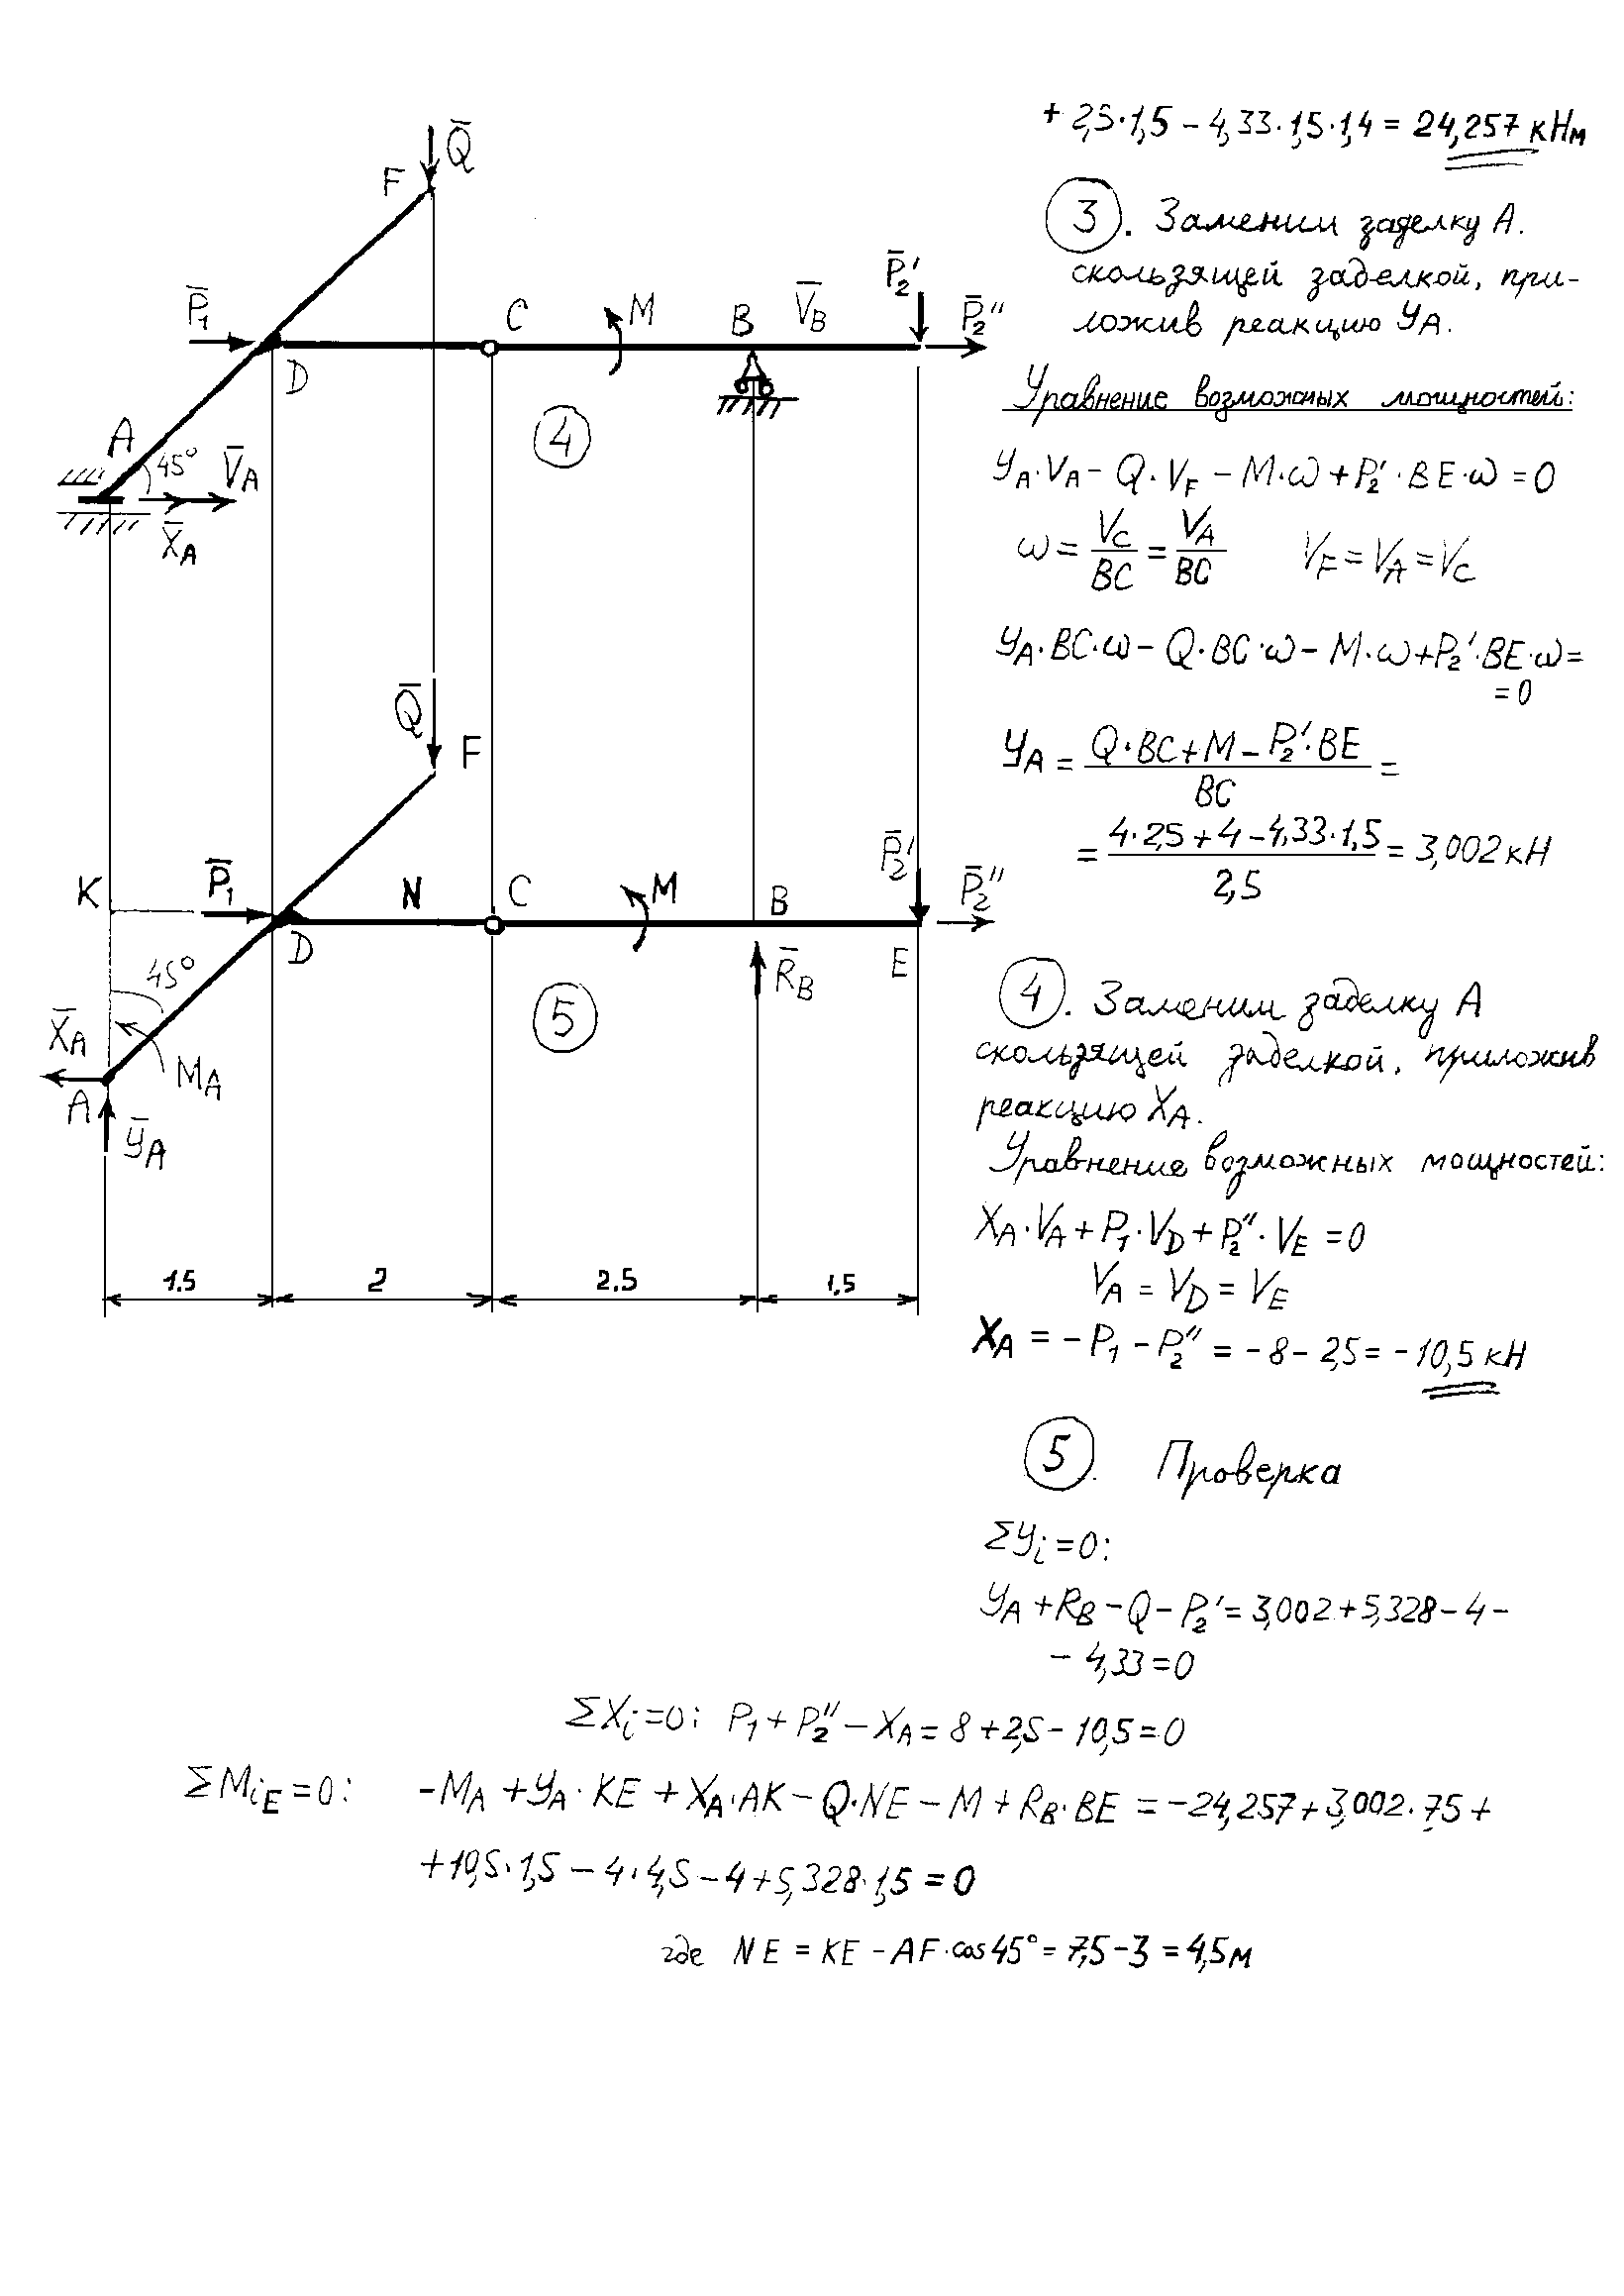 + 2,5·1,5 − 4,33·1,5·1,4 = 24,257 кНм
3. Заменим заделку A.
скользящей заделкой, при-
ложив реакцию YA.
Уравнение возможных мощностей:
YA·VA − Q·VF − M·ω + P2'·BE·ω = 0
ω = VC/BC = VA/BC VF = VA = VC
YA·BC·ω − Q·BC·ω − M·ω + P2'·BE·ω =
= 0
YA = (Q·BC + M − P2'·BE)/BC =
= (4·2,5 + 4 − 4,33·1,5)/2,5 = 3,002 кН
4. Заменим заделку A
скользящей заделкой, приложив
реакцию XA.
Уравнение возможных мощностей:
XA·VA + P1·VD + P2''·VE = 0
VA = VD = VE
XA = −P1 − P2'' = −8 − 2,5 = −10,5 кН
5. Проверка
ΣYi = 0:
YA + RB − Q − P2' = 3,002 + 5,328 − 4 −
− 4,33 = 0
ΣXi = 0: P1 + P2'' − XA = 8 + 2,5 − 10,5 = 0
ΣMiE = 0: −MA + YA·KE + XA·AK − Q·NE − M + RB·BE = −24,257 + 3,002·7,5 +
+ 10,5·1,5 − 4·4,5 − 4 + 5,328·1,5 = 0
где NE = KE − AF·cos45° = 7,5 − 3 = 4,5 м
Q̄
F
P̄1
D
C
M
B
V̄B
P̄2'
P̄2''
A
45°
V̄A
X̄A
4
Q̄
F
K
P̄1
D
N
C
M
B
P̄2'
P̄2''
E
R̄B
45°
5
X̄A
MA
A
ȲA
1.5
2
2.5
1,5